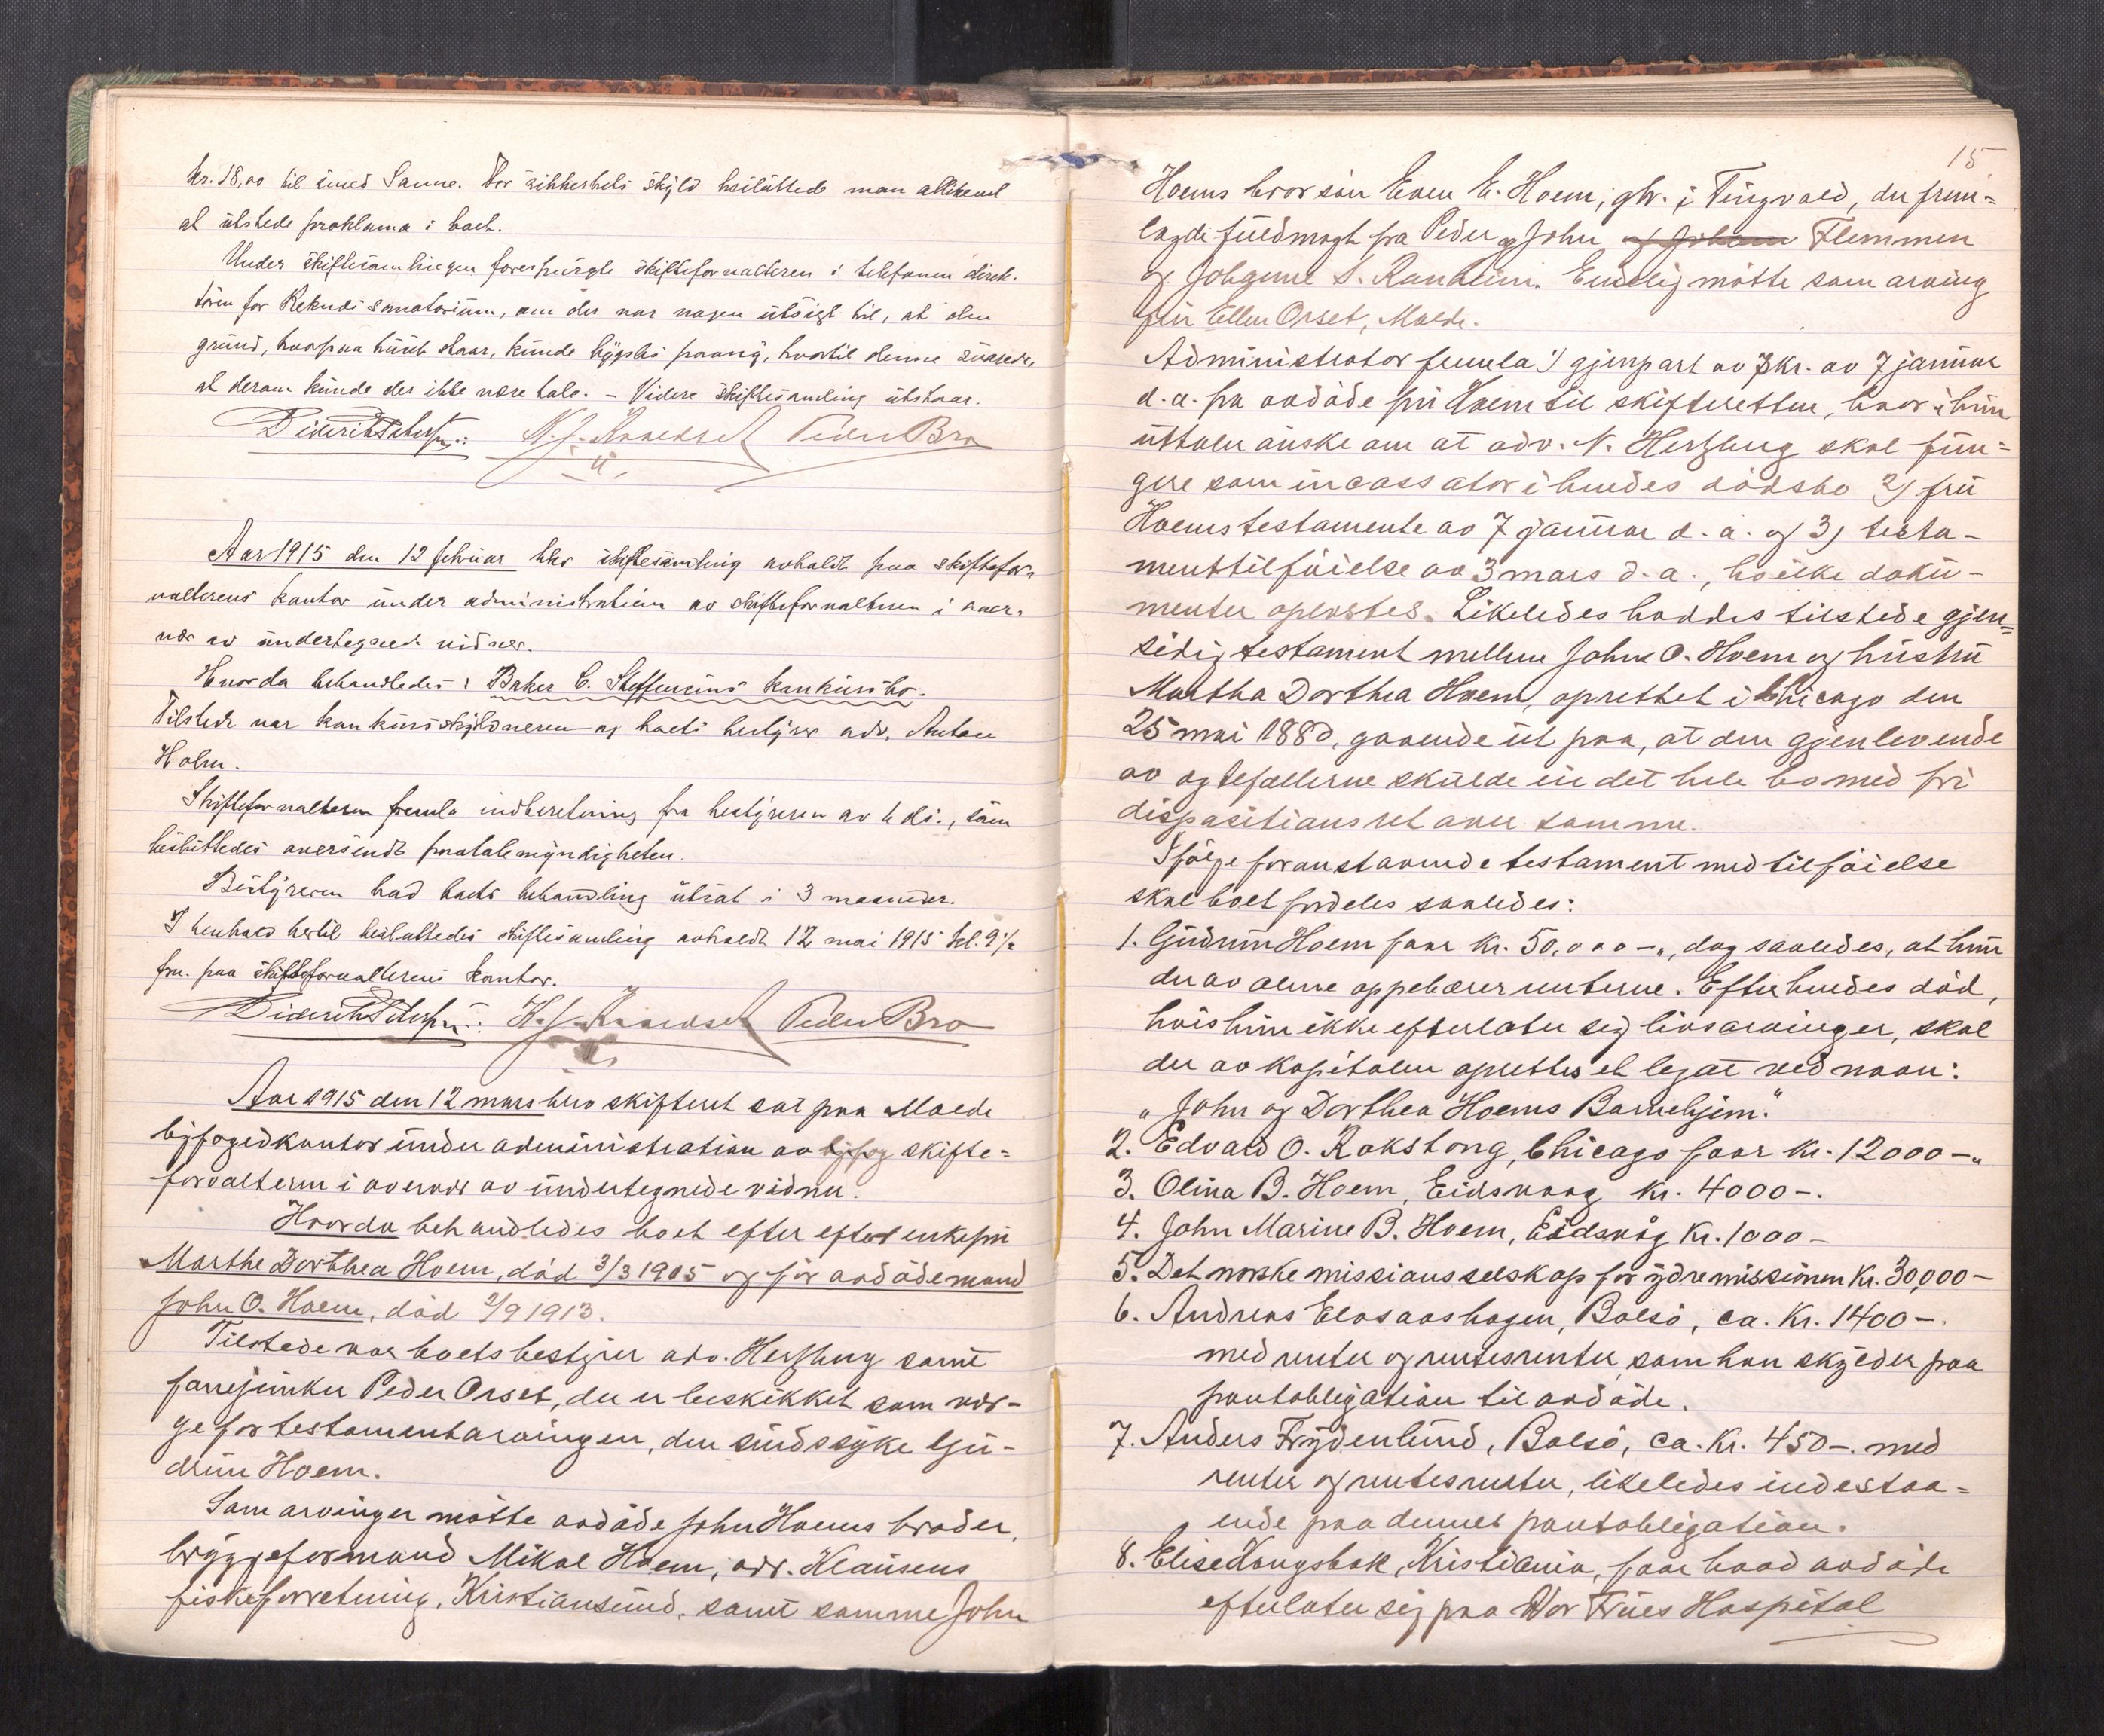 kr. 18,00 til imed Sanne. For sikkerhets skyld besluttede man allikevel
at utstede proklama i boet.
Under skiftesamlingen forespurgte skifteforvalteren i telefonen direk-
tøren for Reknes sanatorium, om der var nogen utsigt til, at den
grund, hvorpaa huset staar, kunde bygsles paany, hvortil denne svarede,
at derom kunde der ikke være tale. – Videre skiftesamling utstaar.
Peder Bro
Aar 1915 den 12 februar blev skiftesamling avholdt paa skiftefor-
valterens kontor under administration av skifteforvalteren i over-
vær av undertegnede vidner.
Hvorda behandledes: Baker C. Steffensens konkursbo.
Tilstede var konkursskyldneren og boets bestyrer adv. Anton
Holm.
Skifteforvalteren fremla indberetning fra bestyreren av 6 ds., som
besluttedes oversendt paatalemyndigheten.
Bestyreren bad boets behandling utsat i 3 maaneder.
I henhold hertil besluttedes skiftesamling avholdt 12 mai 1915 kl. 9 1/2
fm. paa skifteforvalterens kontor.
Peder Bro
Aar 1915 den 12 mars blev skifteret sat paa Molde
byfogedkontor under administration av byfog skifte=
forvalteren i overvær av undertegnede vidner.
Hvorda behandledes boet efter efter enkefru
Marthe Dorthea Hoem, død 3/3 1905 og før avdøde mand
John O. Hoem, død 2/9 1913.
Tilstede var boets bestyrer adv. Herzberg samt
fanejunker Peder Orset, der er beskikket som vær-
ge for testamentarvingen, den sindssyke Gu-
drun Hoem.
Som arvinger møtte avdøde John Hoems broder,
bryggeformand Mikal Hoem, adr. Klausens
fiskeforretning, Kristiansund, samt samme John
15
Hoems brorsøn Even E. Hoem, gbr. i Tingvold, der frem=
lagde fuldmagt fra Peder og John og Johan Flemmen
og Johanne S. Ranheim. Endelig møtte som arving
fru Ellen Orset, Molde.
Administrator fremla 1) gjenpart av skr. av 7 januar
d.a. fra avdøde fru Hoem til skifteretten, hvori hun
uttaler ønske om at adv. N. Herzberg skal fun=
gere som incassator i hendes dødsbo 2) fru
Hoems testamente av 7 januar d.a. og 3) testa-
menttilføielse av 3 mars d.a., hvilke doku-
menter oplæstes. Likeledes haddes tilstede gjen=
sidig testament mellem John O. Hoem og hustru
Martha Dorthea Hoem, oprettet i Chicago den
25 mai 1880, gaaende ut paa, at den gjenlevende
av egtefællerne skulde eie det hele bo med fri
dispositionsret over samme.
Ifølge foranstaaende testament med tilføielse
skal boet fordeles saaledes:
1. Gudrun Hoem faar kr. 50,000 –„, dog saaledes, at hun
der av alene oppebærer renterne. Efter hendes død,
hvis hun ikke efterlater sig livsarvinger, skal
der av kapitalen oprettes et legat ved navn:
„John og Dorthea Hoems Barnehjem."
2. Edvard O. Rokstong, Chicago faar kr. 12000 –„
3. Olina B. Hoem, Eidsvaag kr. 4000 –.
4. John Marine B. Hoem, Eidsvåg kr. 1000 –
5. Det norske missionsselskap for ydremissionen kr. 30,000 –
6. Andreas Elvsaashagen, Bolsø, ca. kr. 1400 –.
med renter og rentesrenter som han skylder paa
pantobligation til avdøde.
7. Anders Frydenlund, Bolsø, ca. kr. 450 –. med
renter og rentesrenter, likeledes indestaa=
ende paa dennes pantobligation.
8. Elise Kongsbak, Kristiania, faar hvad avdøde
efterlater sig paa Vor Frues Hospital